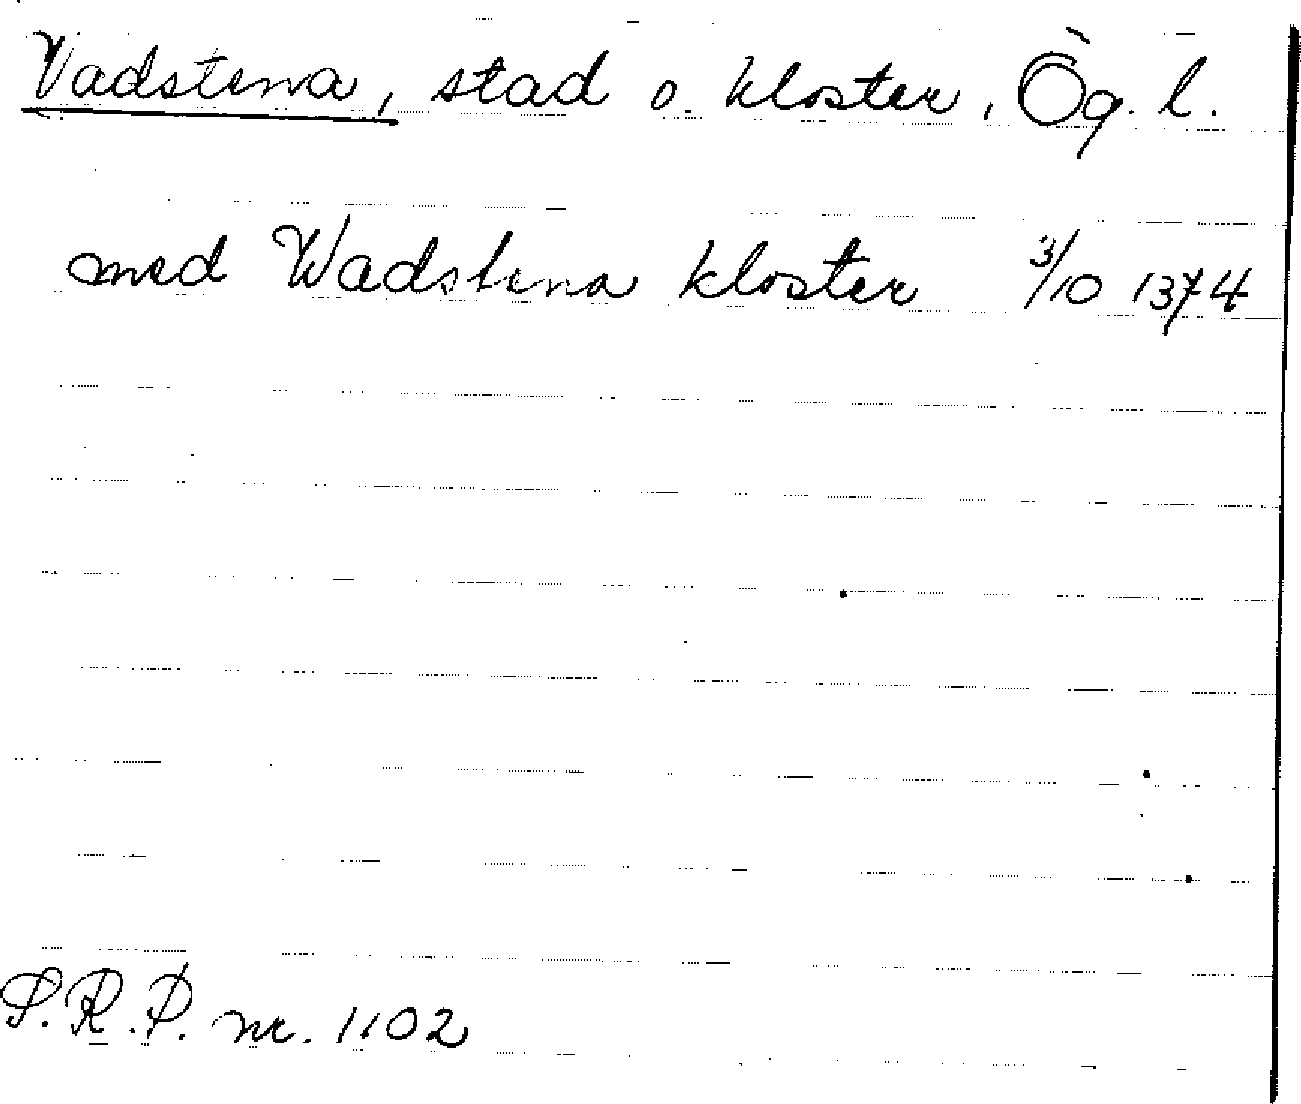 Vadstena, stad o. kloster, Ög. l.
med Wadstena kloster 3/10 1374
S.R.P. nr. 1102